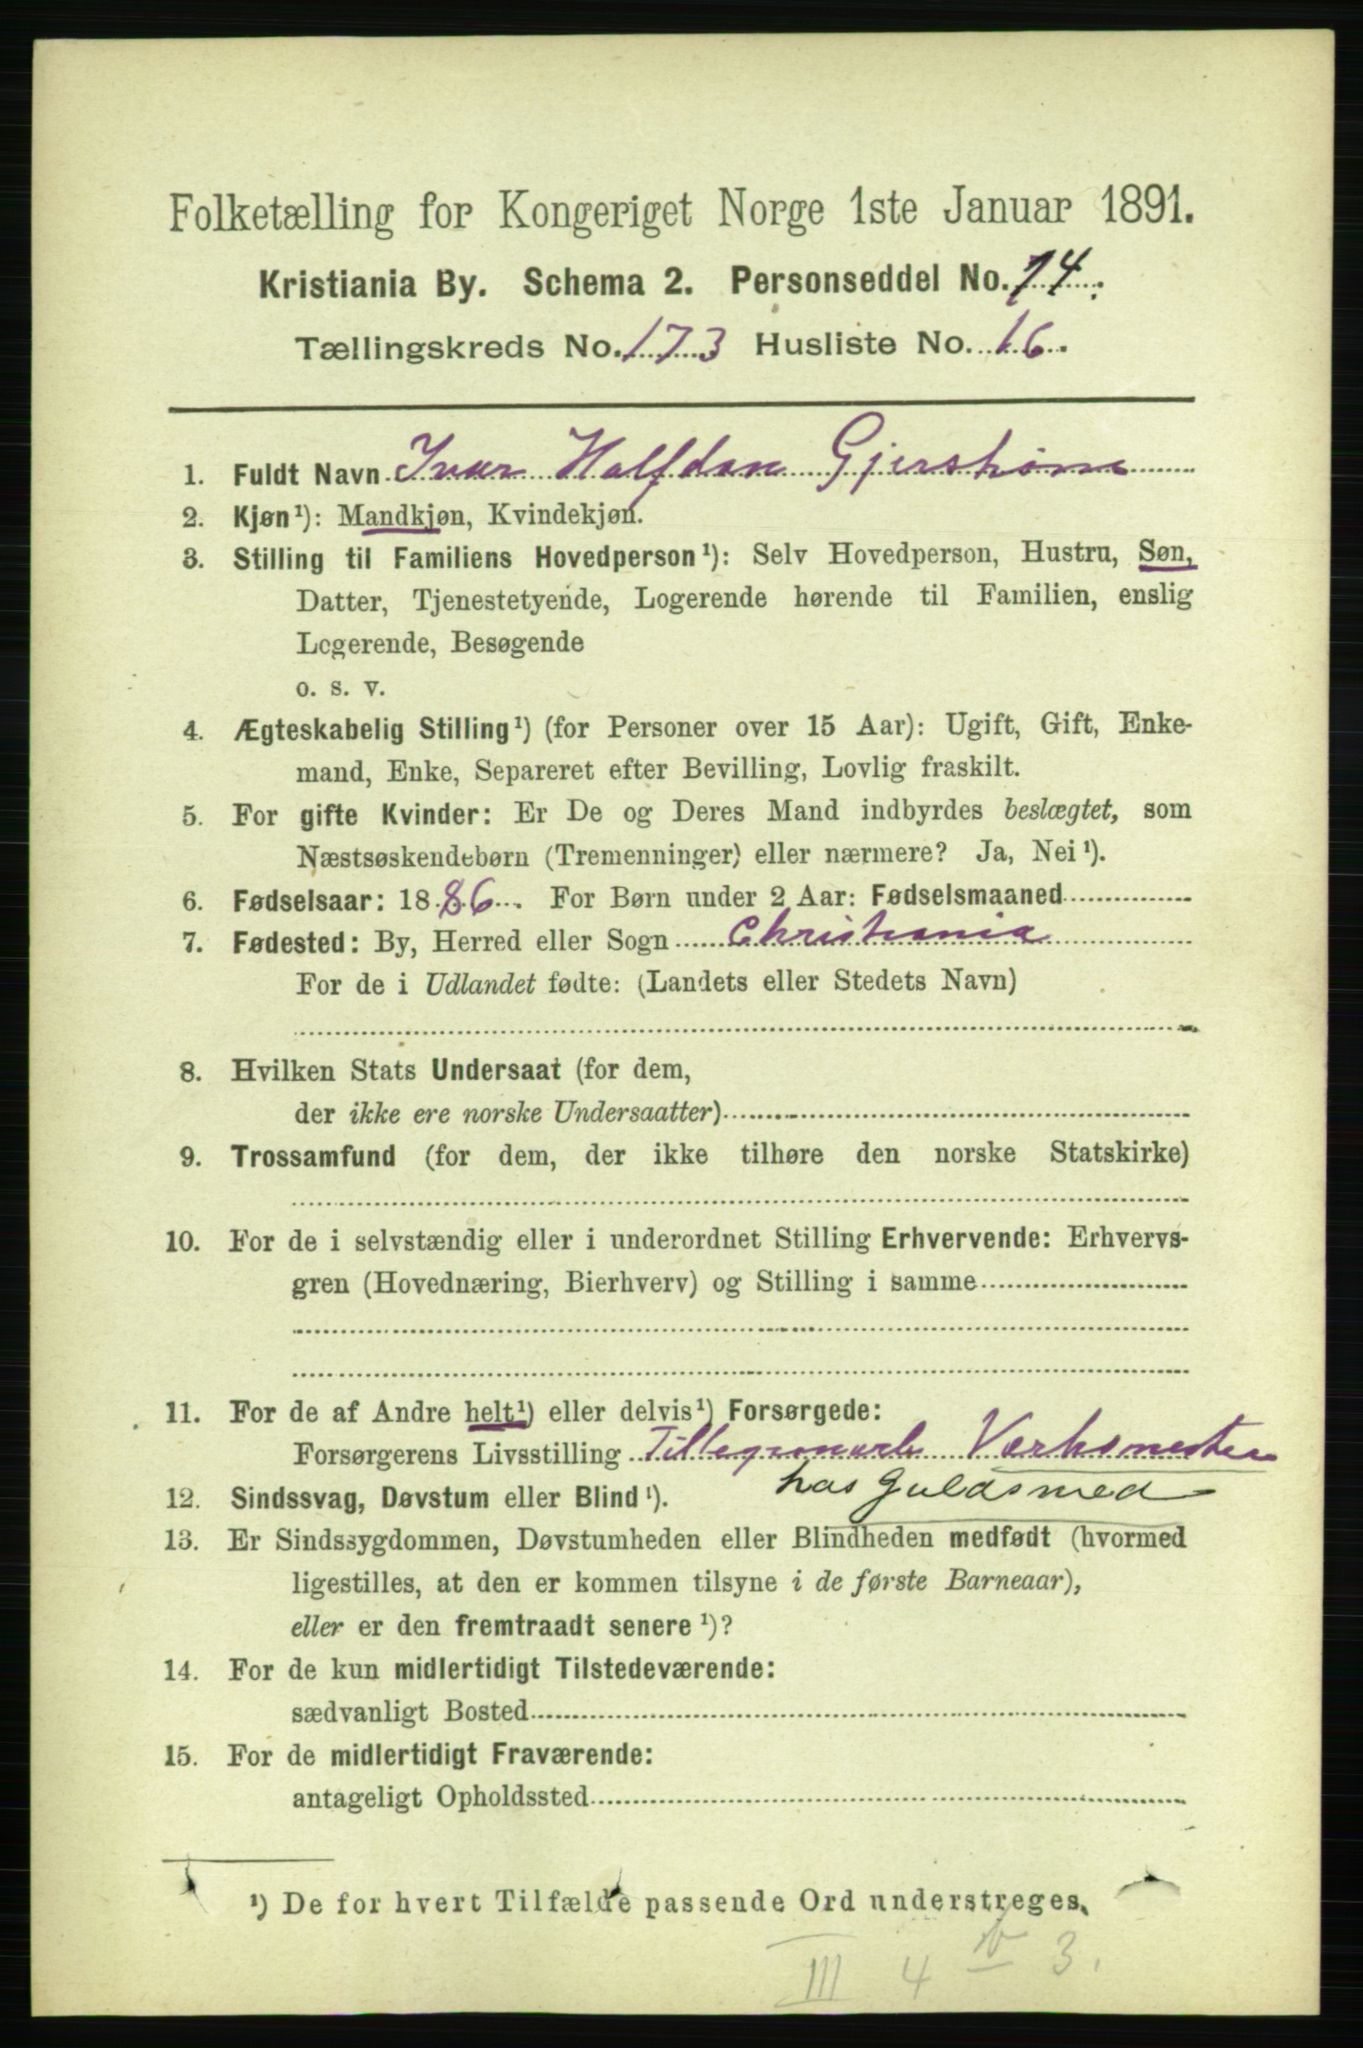 Folketælling for Kongeriget Norge 1ste Januar 1891.
Kristiania By. Schema 2. Personseddel No. 14.
Tællingskreds No. 173 Husliste No. 16.
1. Fuldt Navn Ivar Halfdan
2. Kjøn¹): Mandkjøn, Kvindekjøn.
3. Stilling til Familiens Hovedperson¹): Selv Hovedperson, Hustru, Søn,
Datter, Tjenestetyende, Logerende hørende til Familien, enslig
Logerende, Besøgende
o. s. v.
4. Ægteskabelig Stilling¹) (for Personer over 15 Aar): Ugift, Gift, Enke-
mand, Enke, Separeret efter Bevilling, Lovlig fraskilt.
5. For gifte Kvinder: Er De og Deres Mand indbyrdes beslægtet, som
Næstsøskendebørn (Tremenninger) eller nærmere? Ja, Nei¹).
6. Fødselsaar: 1886. For Børn under 2 Aar: Fødselsmaaned
7. Fødested: By, Herred eller Sogn Christiania
For de i Udlandet fødte: (Landets eller Stedets Navn)
8. Hvilken Stats Undersaat (for dem,
der ikke ere norske Undersaatter)
9. Trossamfund (for dem, der ikke tilhøre den norske Statskirke)
10. For de i selvstændig eller i underordnet Stilling Erhvervende: Erhvervs-
gren (Hovednæring, Bierhverv) og Stilling i samme
11. For de af Andre helt¹) eller delvis¹) Forsørgede:
Forsørgerens Livsstilling Værksmester
hos Guldsmed
12. Sindssvag, Døvstum eller Blind¹).
13. Er Sindssygdommen, Døvstumheden eller Blindheden medfødt (hvormed
ligestilles, at den er kommen tilsyne i de første Barneaar),
eller er den fremtraadt senere¹)?
14. For de kun midlertidigt Tilstedeværende:
sædvanligt Bosted
15. For de midlertidigt Fraværende:
antageligt Opholdssted
¹) De for hvert Tilfælde passende Ord understreges.
III 4 3.